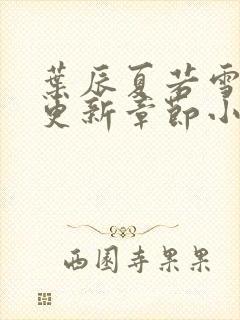 葉辰夏若雪
更新章節小
西園寺果果